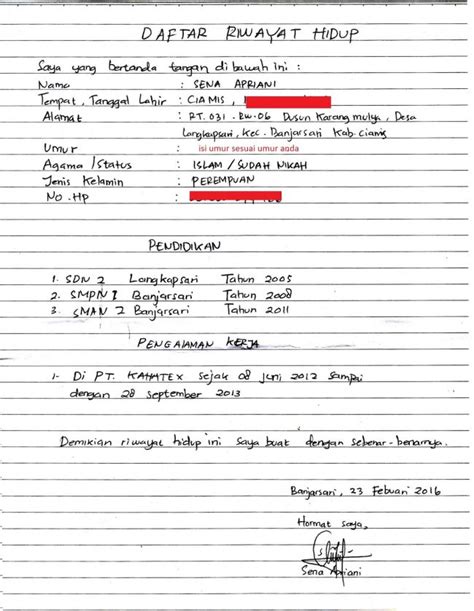 DAFTAR RIWAYAT HIDUP
Saya yang bertanda tangan di bawah ini :
Nama : SENA APRIANI
Tempat, Tanggal Lahir : CIAMIS,
Alamat : RT. 031. RW. 06 Dusun Karang mulya, Desa
Langkapsari, Kec. Banjarsari Kab. Ciamis
Umur : isi umur sesuai umur anda
Agama / Status : ISLAM / SUDAH NIKAH
Jenis Kelamin : PEREMPUAN
No. HP :
PENDIDIKAN
1. SDN 2 Langkapsari Tahun 2005
2. SMPN 1 Banjarsari Tahun 2008
3. SMAN 2 Banjarsari Tahun 2011
PENGALAMAN KERJA
1- Di PT. KAHATEX sejak 08 Juni 2012 sampai
dengan 28 september 2013
Demikian riwayat hidup ini saya buat dengan sebenar-benarnya.
Banjarsari, 23 Febuari 2016
Hormat saya,
Sena Apriani